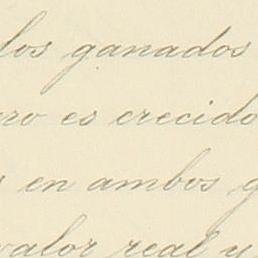 los ganados
ro es crecido
en ambos
valor real y